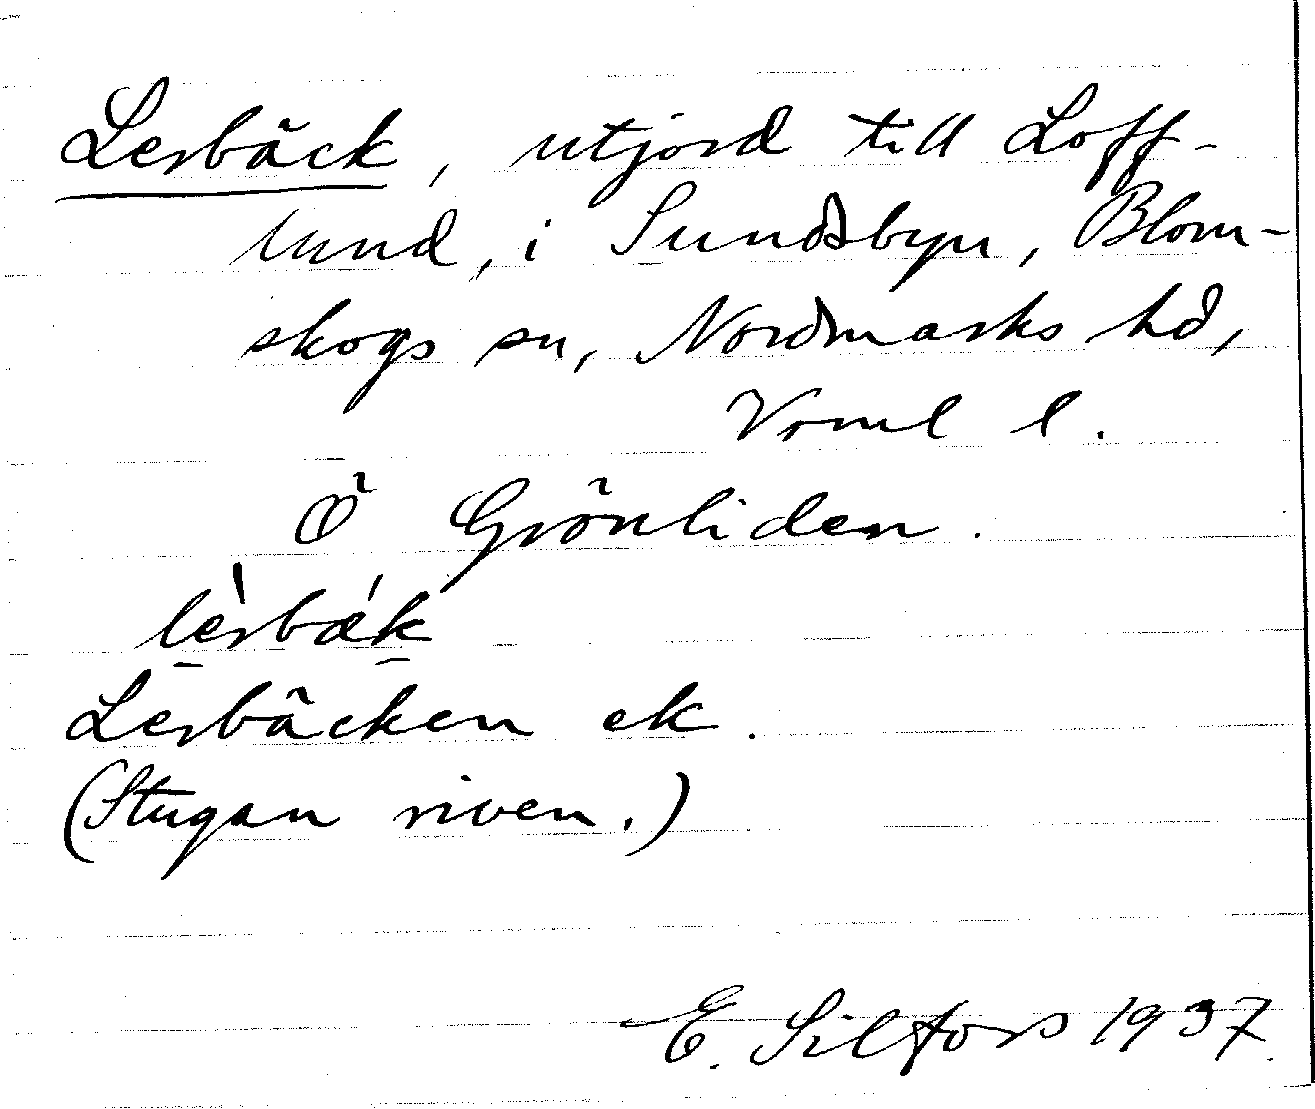 Lerbäck, utjord till Loff-
lund, i Sundsbyn, Blom-
skogs sn, Nordmarks hd,
Vrml l.
Ö Grönliden.
lèrbǽk
Lerbäcken ek.
(Stugan riven.)
E. Silfors 1937.